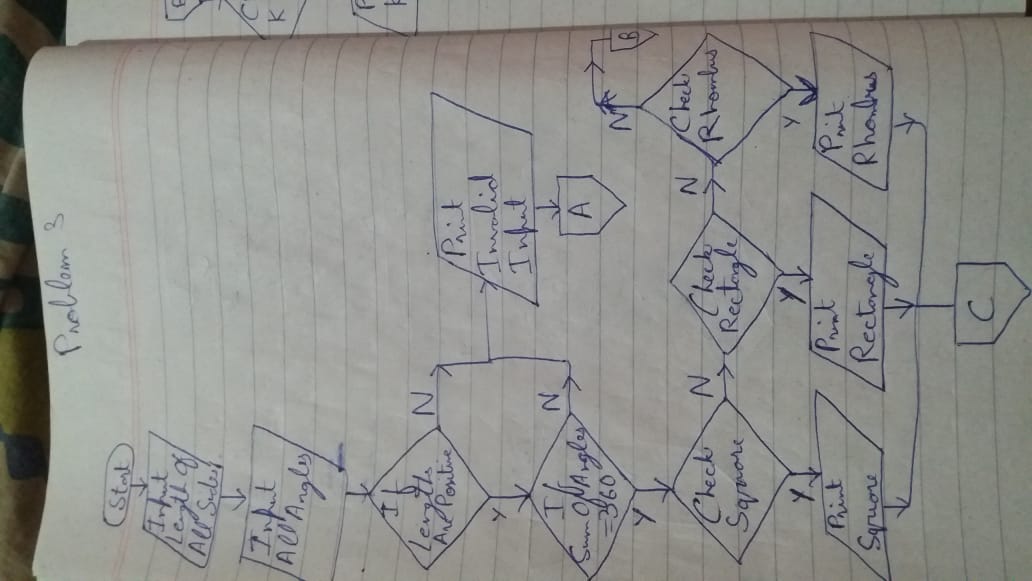 Problem 3
Start
Input
Length Of
All Sides
Input
All Angles
If
Lengths
Are Positive
N
Y
Print
Invalid
Input
A
If
Sum Of Angles
=360
N
Y
Check
Square
N
Y
Check
Rectangle
N
Y
Check
Rhombus
N
B
Y
Print
Square
Print
Rectangle
Print
Rhombus
C
C
K
P